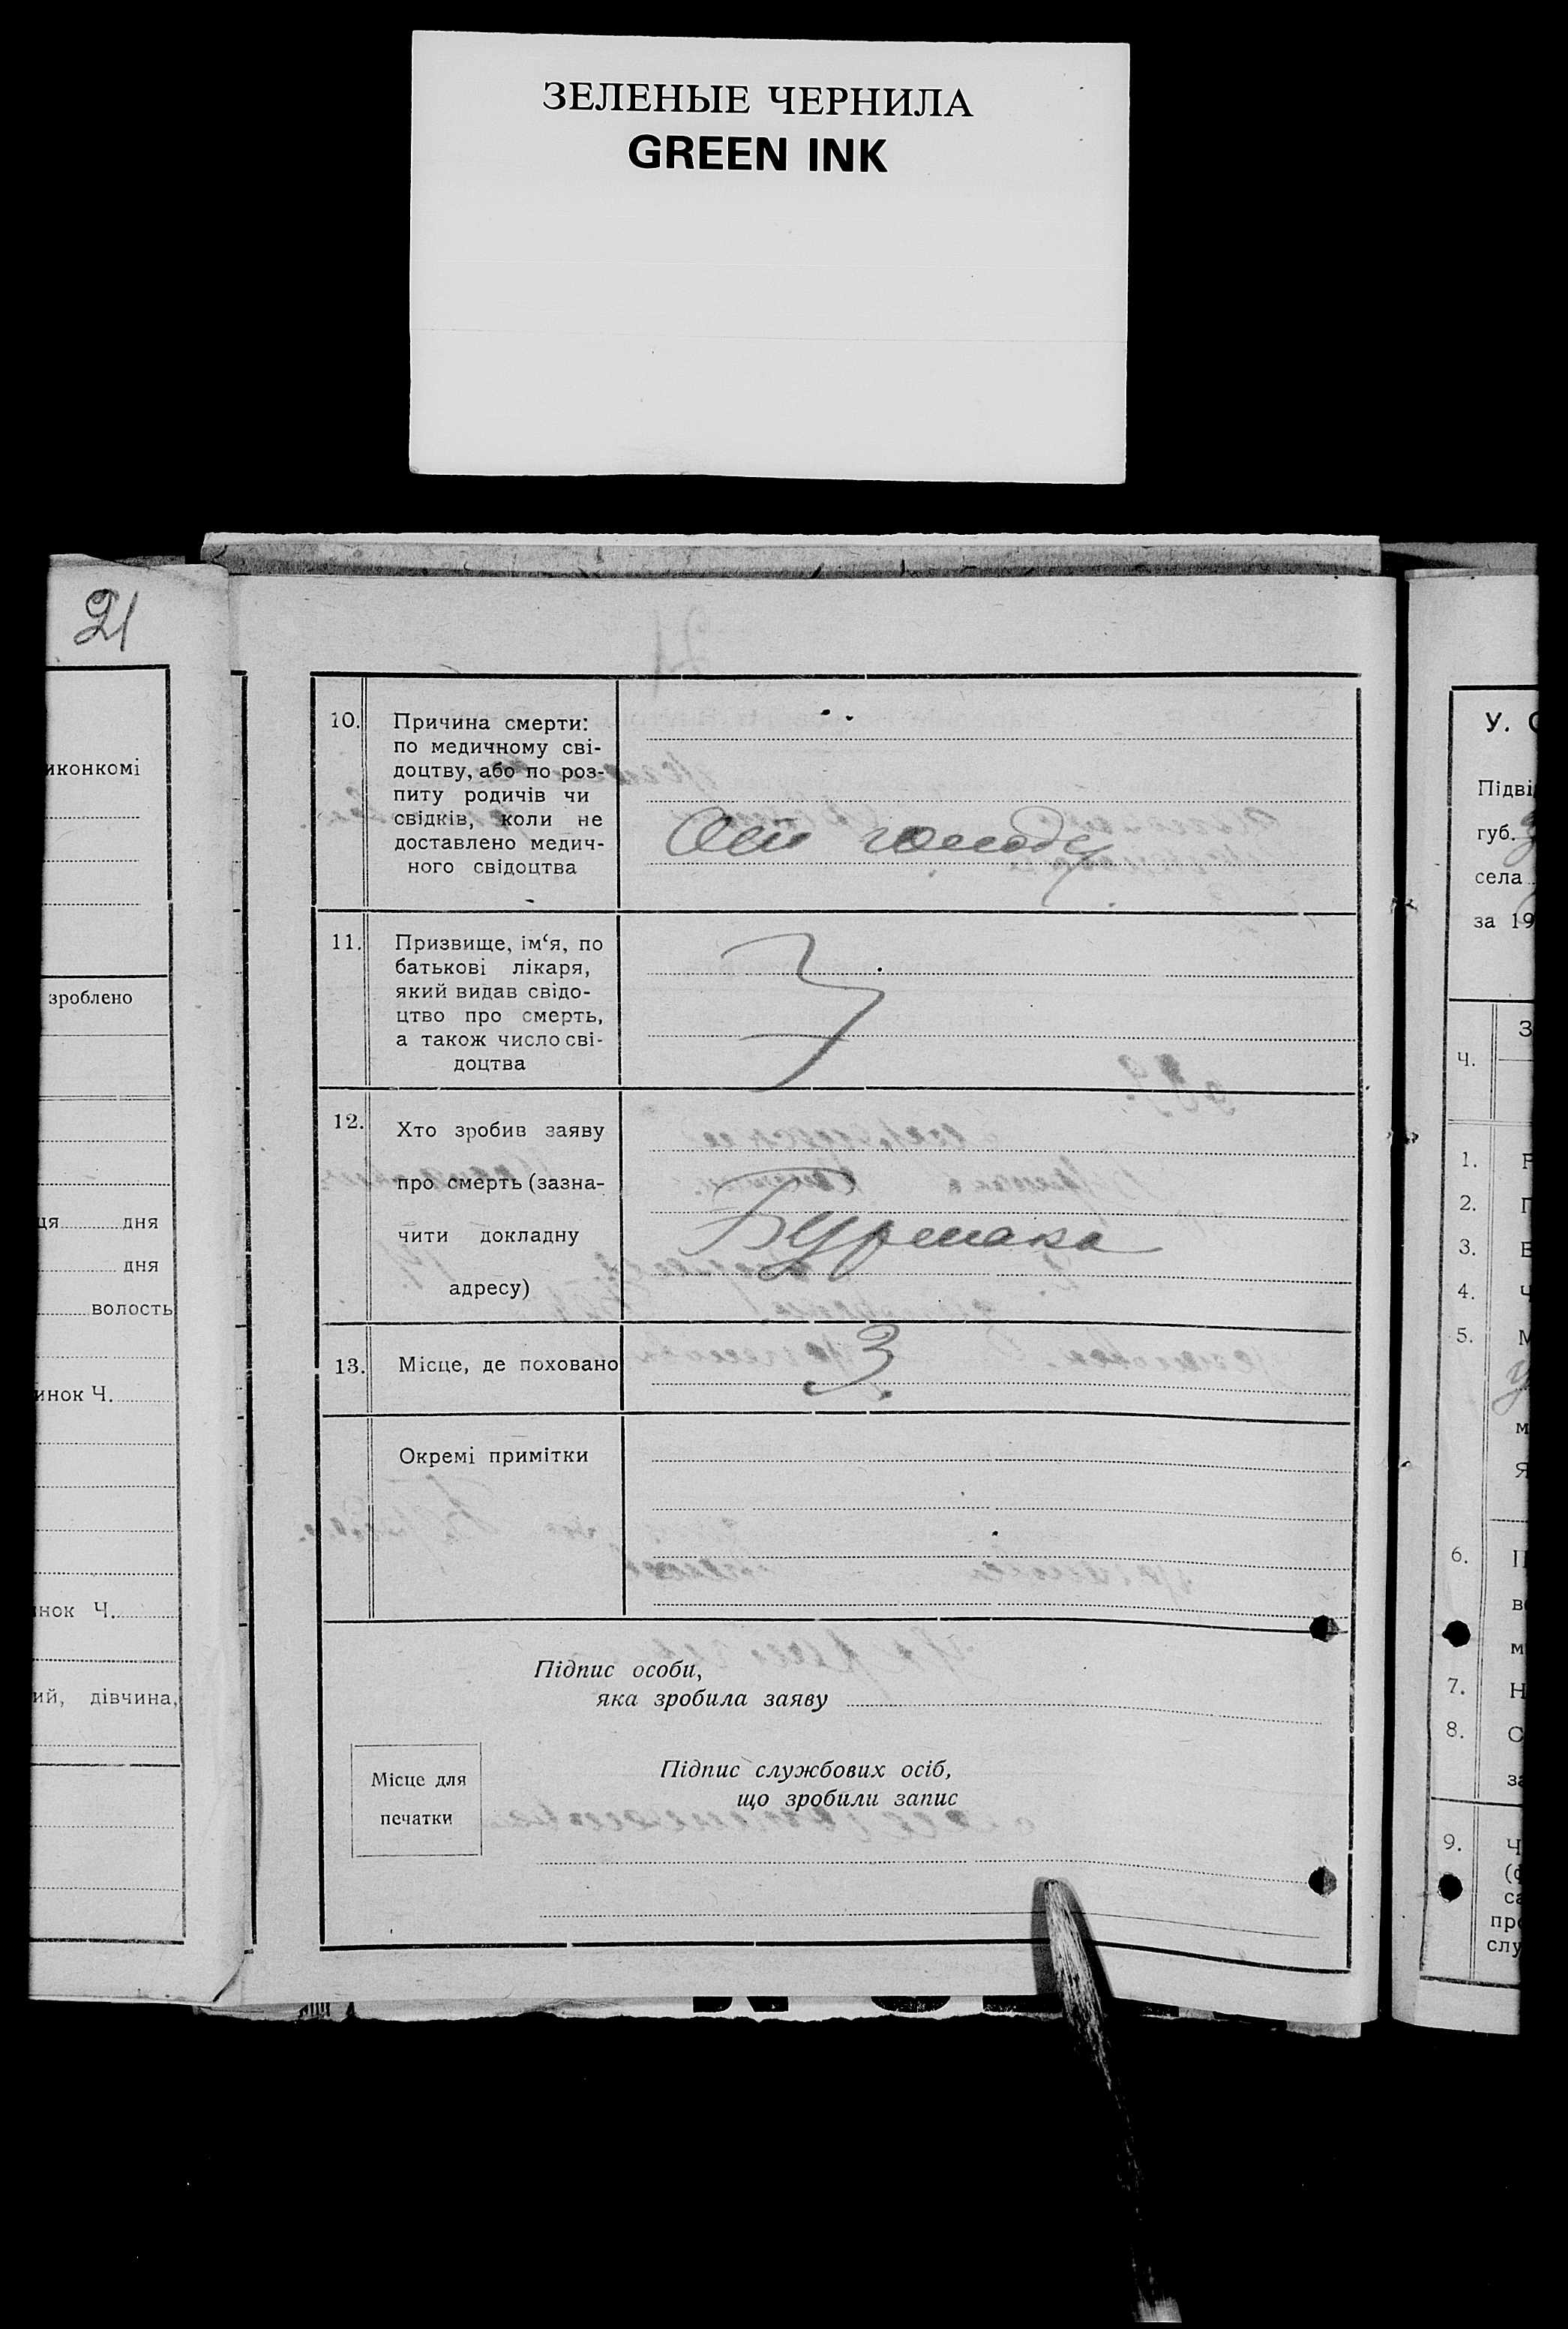 ЗЕЛЕНЫЕ ЧЕРНИЛА
GREEN INK
21
иконкомі
зроблено
ця дня
дня
волость
инок Ч.
нок Ч.
ий, дівчина,
10. Причина смерти:
по медичному сві-
доцтву, або по роз-
питу родичів чи
свідків, коли не
доставлено медич-
ного свідоцтва
От голоду
11. Призвище, ім‘я, по
батькові лікаря,
який видав свідо-
цтво про смерть,
а також число сві-
доцтва
12. Хто зробив заяву
про смерть (зазна-
чити докладну
адресу)
Бурмака
13. Місце, де поховано
З
Окремі примітки
Підпис особи,
яка зробила заяву
Місце для
печатки
Підпис службових осіб,
що зробили запис
У. С
Підві
губ.
села
за 19
Ч.
З
1.
2. П
3. В
4. Ч
5. М
м
Я
6. П
в
м
7. Н
8. С
за
9. Ч
(ф
са
про
слу